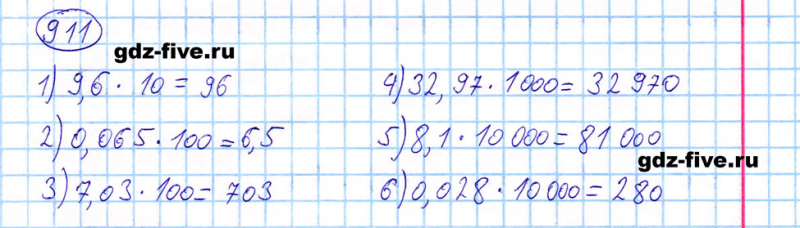 911
gdz-five.ru
1) 9,6 · 10 = 96
2) 0,065 · 100 = 6,5
3) 7,03 · 100 = 703
4) 32,97 · 1000 = 32 970
5) 8,1 · 10 000 = 81 000
gdz-five.ru
6) 0,028 · 10 000 = 280